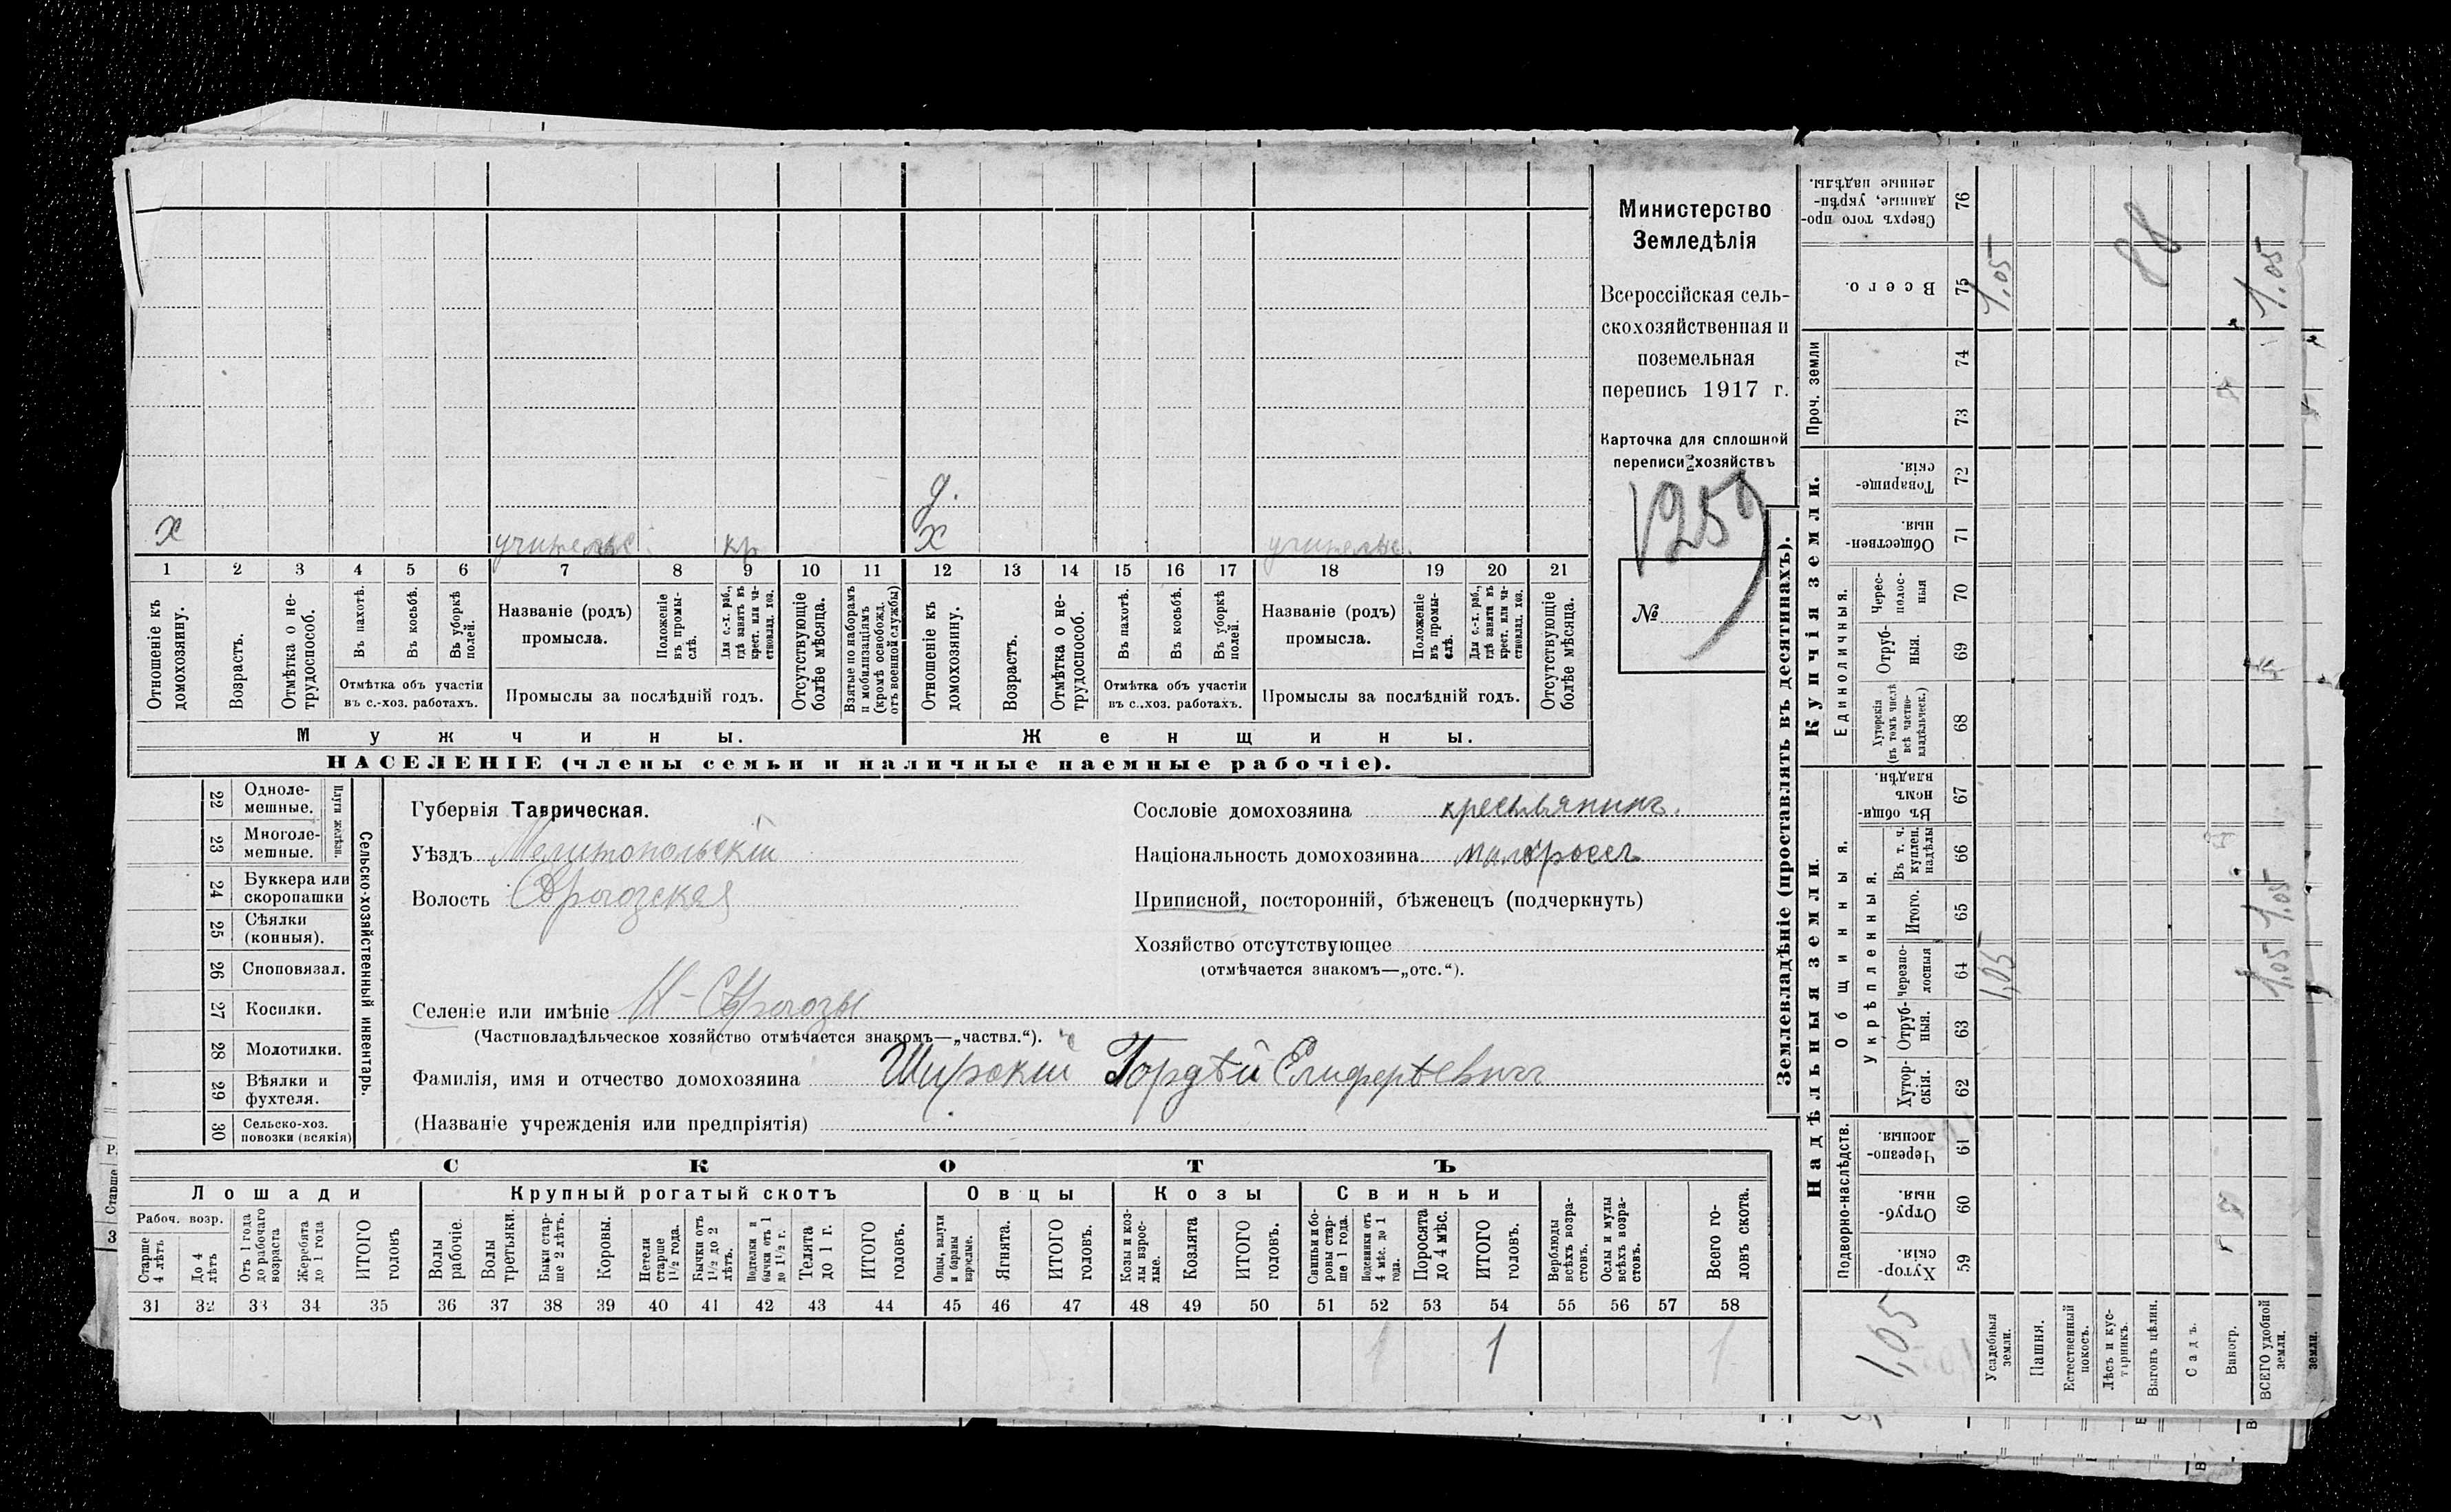 х
учительс.
кр
д.
х
учительс.
1 2 3 4 5 6 7 8 9 10 11 12 13 14 15 16 17 18 19 20 21
Отношеніе къ домохозяину.
Возрастъ.
Отмѣтка о не-трудоспособ.
Въ пахотѣ.
Въ косьбѣ.
Въ уборкѣ полей.
Отмѣтка объ участіи
въ с.-хоз. работахъ.
Названіе (родъ)
промысла.
Положеніе въ промы-слѣ.
Для с.-х. раб., гдѣ занятъ въ крест. или ча-стновлад. хоз.
Промыслы за послѣдній годъ.
Отсутствующіе болѣе мѣсяца.
Взятые по наборамъ и мобилизаціямъ (кромѣ освобожд. отъ военной службы)
Отношеніе къ домохозяину.
Возрастъ.
Отмѣтка о не-трудоспособ.
Въ пахотѣ.
Въ косьбѣ.
Въ уборкѣ полей.
Отмѣтка объ участіи
въ с..хоз. работахъ.
Названіе (родъ)
промысла.
Положеніе въ промы-слѣ.
Для с.-х. раб., гдѣ занята въ крест. или ча-стновлад. хоз.
Промыслы за послѣдній годъ.
Отсутствующіе болѣе мѣсяца.
Мужчины.
Женщины.
НАСЕЛЕНІЕ (члены семьи и наличные наемные рабочіе).
Министерство
Земледѣлія
Всероссійская сель-
скохозяйственная и
поземельная
перепись 1917 г.
Карточка для сплошной
переписи хозяйствъ
№
22 Одноле-мешные.
23 Многоле-мешные.
Плуги желѣзн.
24 Буккера или скоропашки
25 Сѣялки (конныя).
26 Сноповязал.
27 Косилки.
28 Молотилки.
29 Вѣялки и фухтеля.
30 Сельско-хоз. повозки (всякія)
Сельско-хозяйственный инвентарь.
Губернія Таврическая.
Уѣздъ Мелитопольскій
Волость
Селеніе или имѣніе
(Частновладѣльческое хозяйство отмѣчается знакомъ—„частвл.“).
Фамилія, имя и отчество домохозяина Широкій Гордѣй Елиферьевичъ
(Названіе учрежденія или предпріятія)
Сословіе домохозяина крестьянинъ.
Національность домохозяина малороссъ
Приписной, посторонній, бѣженецъ (подчеркнуть)
Хозяйство отсутствующее
(отмѣчается знакомъ—„отс.“).
СКОТЪ
Лошади
Крупный рогатый скотъ
Овцы
Козы
Свиньи
Рабоч. возр.
Старше 4 лѣтъ
До 4 лѣтъ
Отъ 1 года до рабочаго возраста
Жеребята до 1 года
ИТОГО головъ
Волы рабочіе.
Волы третьяки.
Быки стар-ше 2 лѣтъ.
Коровы.
Нетели старше 1½ года.
Бычки отъ 1½ до 2 лѣтъ.
Подтелки и бычки отъ 1 до 1½ г.
Телята до 1 г.
ИТОГО головъ.
Овцы, валухи и бараны взрослые.
Ягнята.
ИТОГО головъ.
Козы и коз-лы взрос-лые.
Козлята
ИТОГО головъ.
Свиньи и бо-ровы стар-ше 1 года.
Подсвинки отъ 4 мѣс. до 1 года.
Поросята до 4 мѣс.
ИТОГО головъ.
Верблюды всѣхъ возра-стовъ.
Ослы и мулы всѣхъ возра-стовъ.
Всего го-ловъ скота.
31 32 33 34 35 36 37 38 39 40 41 42 43 44 45 46 47 48 49 50 51 52 53 54 55 56 57 58
1 1 1
Землевладѣніе (проставлять въ десятинахъ).
Надѣльныя земли.
Купчія земли.
Проч. земли
Подворно-наслѣдств.
Общинныя.
Укрѣпленныя.
Единоличныя.
Хутор-скія. 59
Отруб-ныя. 60
Черезпо-лосныя. 61
Хутор-скія. 62
Отруб-ныя. 63
Черезпо-лосныя 64
Итого. 65
Въ т. ч. куплен. надѣлы 66
Въ общин-номъ владѣн. 67
Хуторскія (въ томъ числѣ всѣ частно-владѣльческ.) 68
Отруб-ныя. 69
Черес-полос-ныя 70
Обществен-ныя. 71
Товарище-скія. 72
73
74
Всего. 75
Сверхъ того про-данные, укрѣп-ленные надѣлы. 76
Усадебныя земли.
Пашня.
Естественный покосъ.
Лѣсъ и кус-тарникъ.
Выгонъ цѣлин.
Садъ.
Виногр.
ВСЕГО удобной земли.
земли.
1,05
1,05
1,05
1,05
1,05
1.05
88